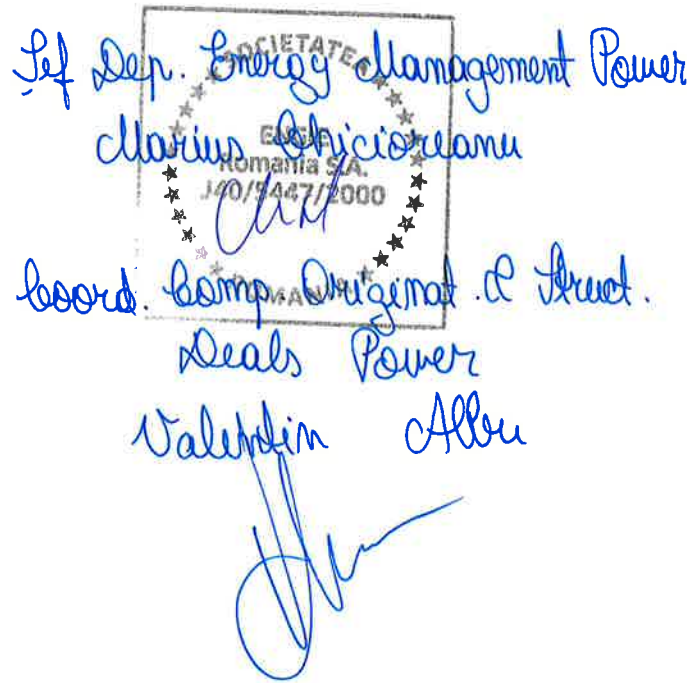 Șef Dep. Energy Management Power
SOCIETATEA
Marius Chicioreanu
ENGIE
Romania S.A.
J40/5447/2000
Coord. Comp. Originat. & Struct.
ROMANIA
Deals Power
Valentin Albu